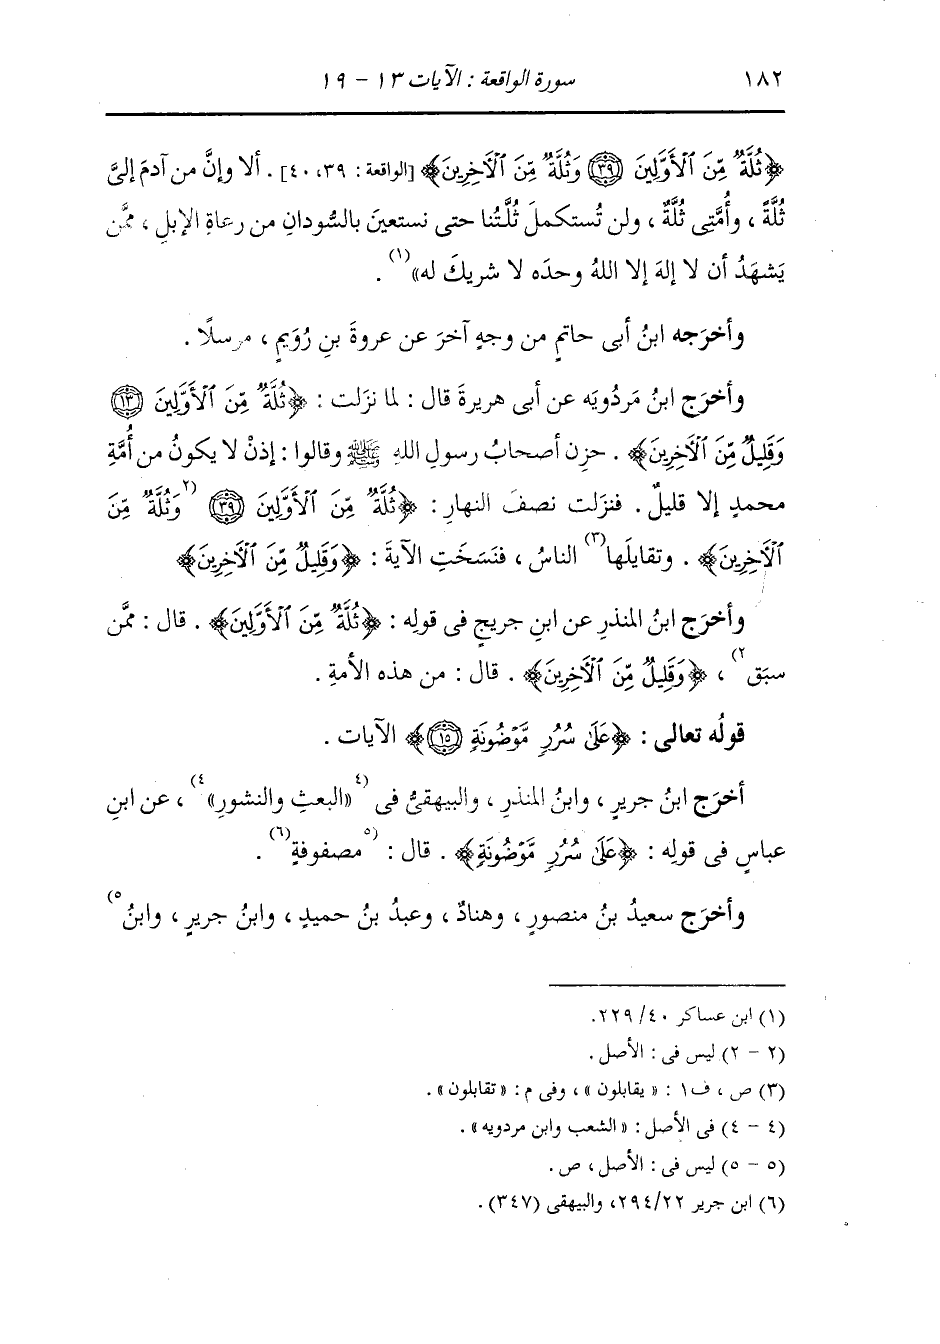 ١٨٢ سورة الواقعة : الآيات ١٣ - ١٩
﴿ثُلَّةٌ مِّنَ ٱلْأَوَّلِينَ ﴿٣٩﴾ وَثُلَّةٌ مِّنَ ٱلْآخِرِينَ﴾ [الواقعة : ٣٩، ٤٠] . ألا وإنَّ من آدمَ إلىَّ
ثُلَّةً ، وأُمَّتِى ثُلَّةٌ ، ولن تُستكملَ ثُلَّتُنا حتى نستعينَ بالسُّودانِ من رعاةِ الإبلِ ، ممَّن
يَشهَدُ أن لا إلهَ إلا اللهُ وحدَه لا شريكَ له»(١) .
وأخرَجه ابنُ أبى حاتمٍ من وجهٍ آخرَ عن عروةَ بنِ رُوَيمٍ ، مرسلًا .
وأخرَج ابنُ مَردُويَه عن أبى هريرةَ قال : لما نزَلت : ﴿ثُلَّةٌ مِّنَ ٱلْأَوَّلِينَ ﴿١٣﴾
وَقَلِيلٌ مِّنَ ٱلْآخِرِينَ﴾ . حزِن أصحابُ رسولِ اللهِ ﷺ وقالوا : إذنْ لا يكونُ من أُمَّةِ
محمدٍ إلا قليلٌ . فنزَلت نصفَ النهارِ : ﴿ثُلَّةٌ مِّنَ ٱلْأَوَّلِينَ ﴿٣٩﴾ (٢وَثُلَّةٌ مِّنَ
ٱلْآخِرِينَ﴾ . وتقابلَها(٣) الناسُ ، فنَسَخَتِ الآيةَ : ﴿وَقَلِيلٌ مِّنَ ٱلْآخِرِينَ﴾
وأخرَج ابنُ المنذرِ عن ابنِ جريجٍ فى قولِه : ﴿ثُلَّةٌ مِّنَ ٱلْأَوَّلِينَ﴾ . قال : ممَّن
سبَق٢) ، ﴿وَقَلِيلٌ مِّنَ ٱلْآخِرِينَ﴾ . قال : من هذه الأمةِ .
قولُه تعالى : ﴿عَلَىٰ سُرُرٍ مَّوْضُونَةٍ ﴿١٥﴾﴾ الآيات .
أخرَج ابنُ جريرٍ ، وابنُ المنذرِ ، والبيهقىُّ فى (٤«البعثِ والنشورِ»٤) ، عن ابنِ
عباسٍ فى قولِه : ﴿عَلَىٰ سُرُرٍ مَّوْضُونَةٍ﴾ . قال : (٥مصفوفةٍ(٦) .
وأخرَج سعيدُ بنُ منصورٍ ، وهنادٌ ، وعبدُ بنُ حميدٍ ، وابنُ جريرٍ ، وابنُ٥)
(١) ابن عساكر ٤٠/ ٢٢٩.
(٢ - ٢) ليس فى : الأصل .
(٣) ص ، ف١ : « يقابلون » ، وفى م : « تقابلون » .
(٤ - ٤) فى الأصل : «الشعب وابن مردويه» .
(٥ - ٥) ليس فى : الأصل ، ص .
(٦) ابن جرير ٢٢/ ٢٩٤، والبيهقى (٣٤٧) .